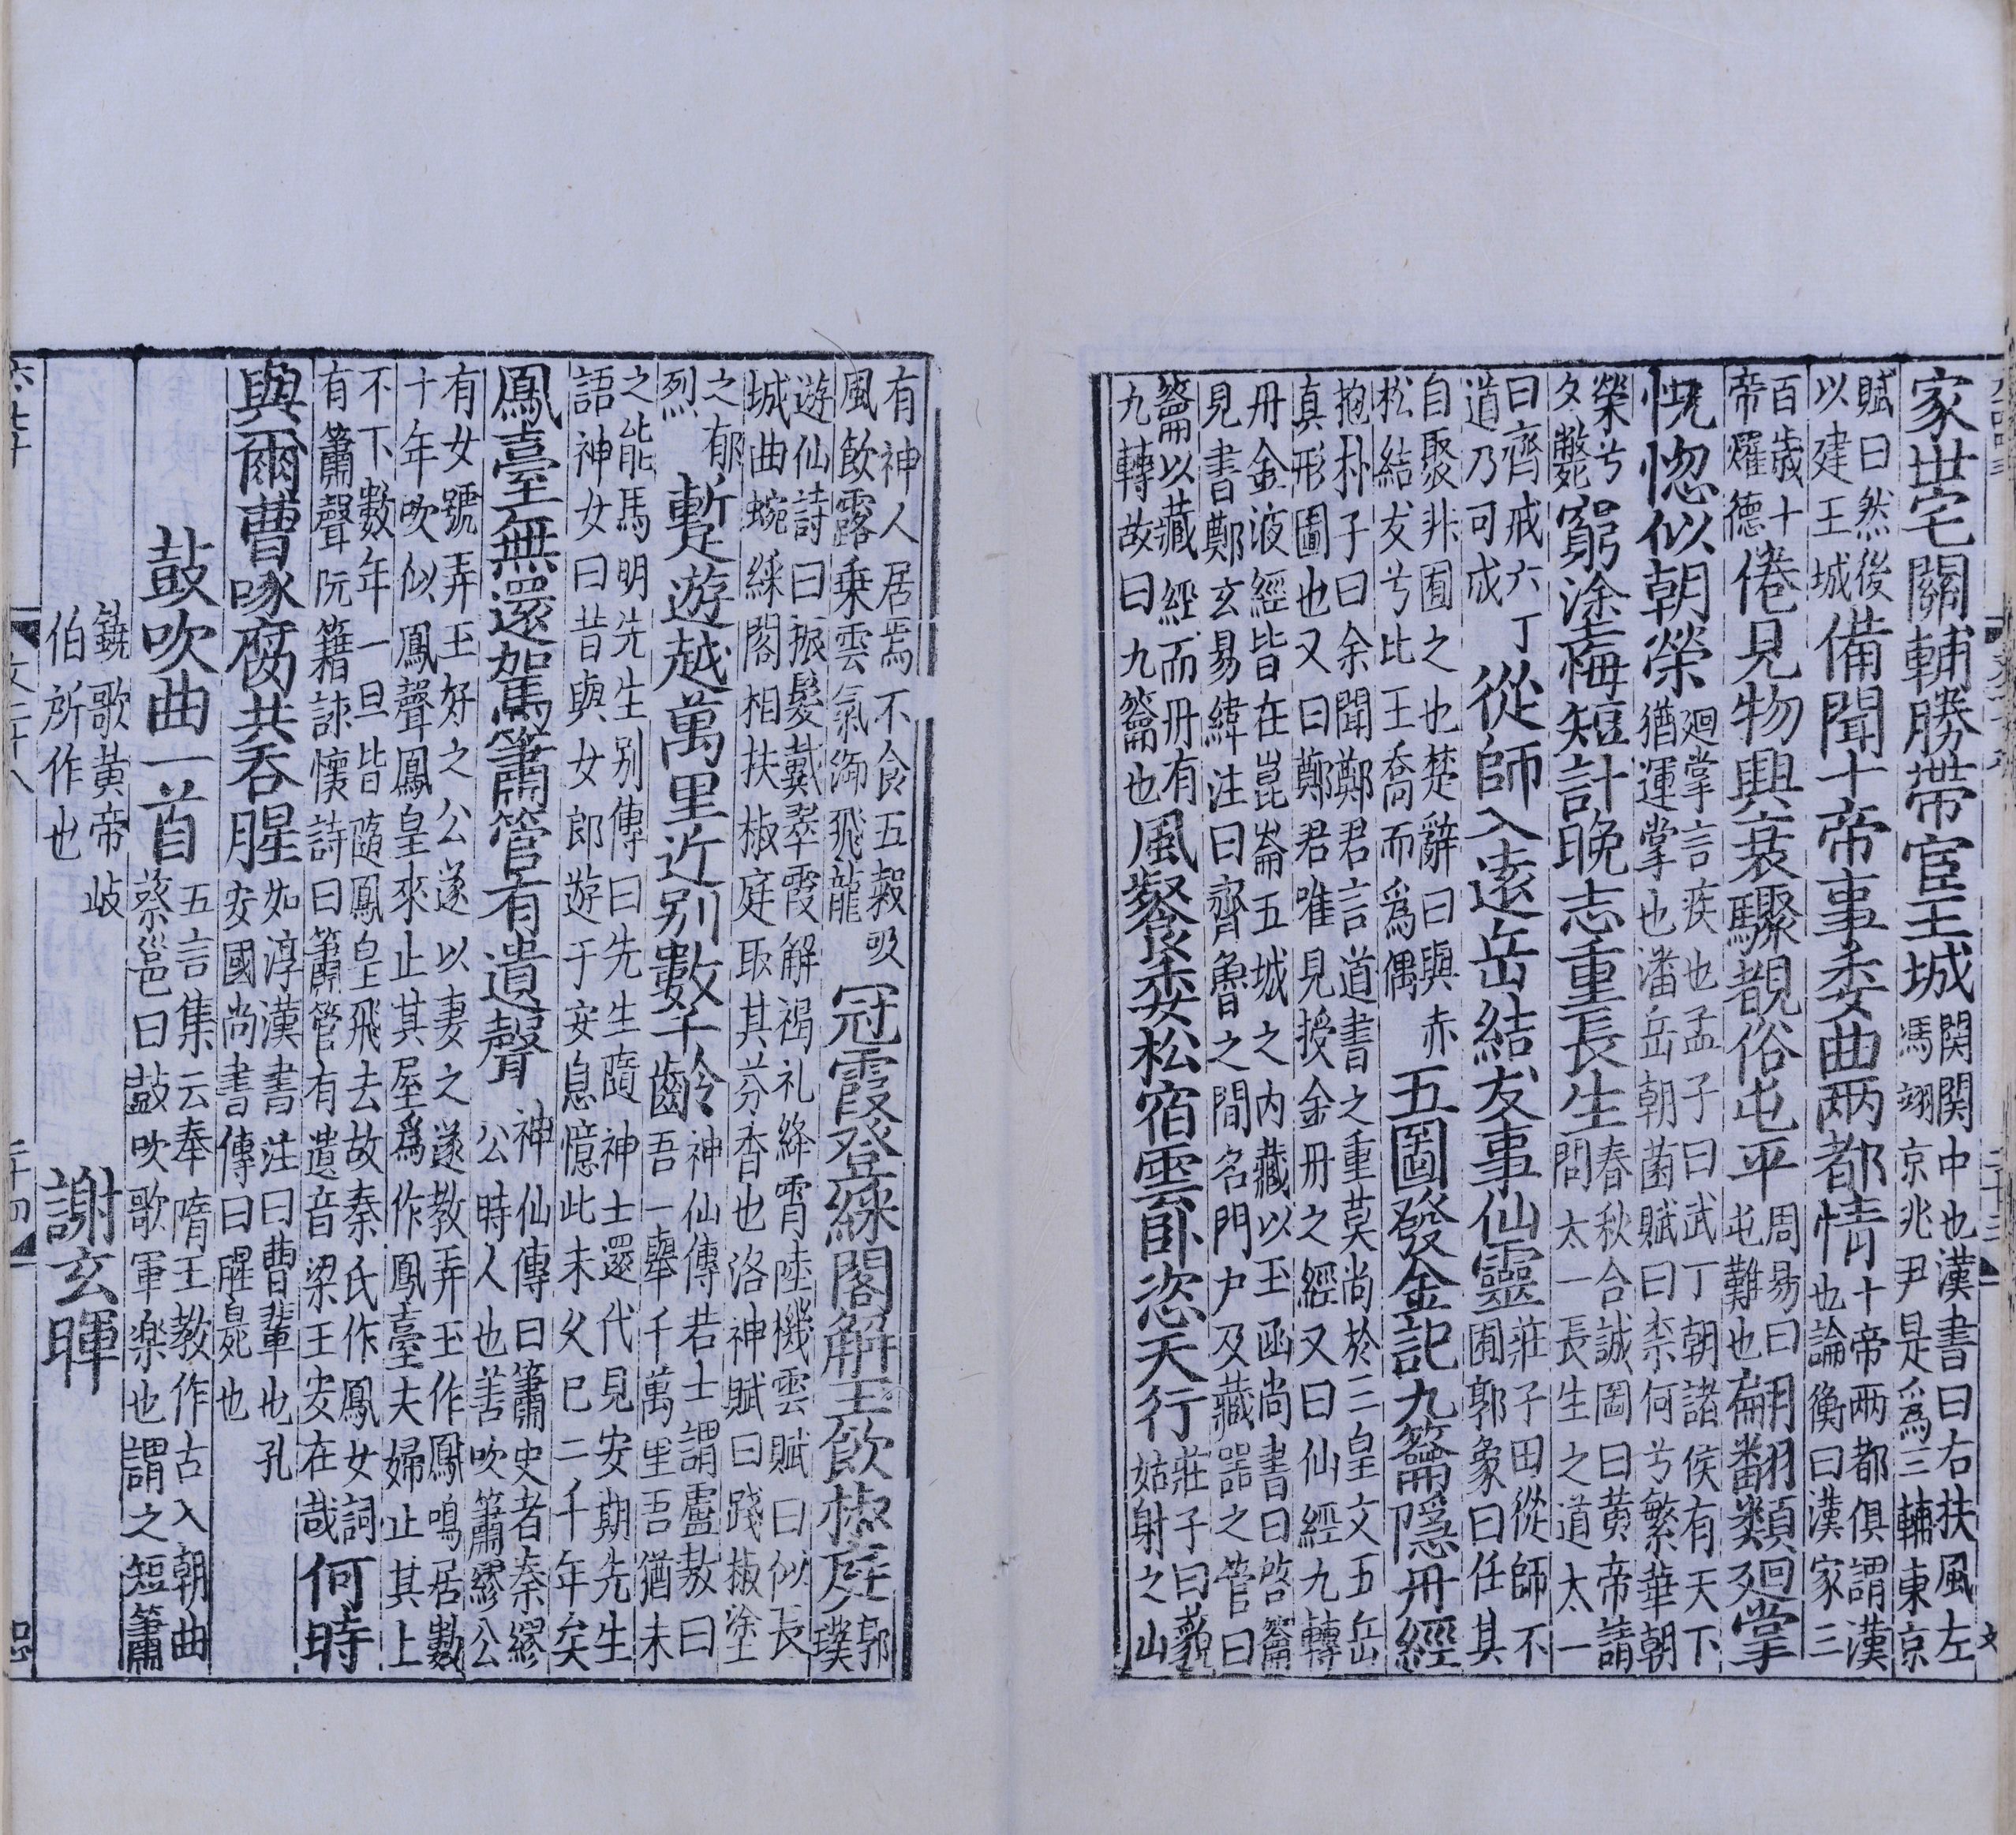 家世宅關輔勝帶宦王城
関関中也漢書曰右扶風左
馮翊京兆尹是爲三輔東京
賦曰然後
以建王城
備聞十帝事委曲两都情
十帝两都俱謂漢
也論衡曰漢家三
百歲十
帝燿德
倦見物興衰驟覩俗屯平
周易曰
屯難也
翩翻類廻掌
怳惚似朝榮
廻掌言疾也孟子曰武丁朝諸侯有天下
猶運掌也潘岳朝菌賦曰柰何兮繁華朝
榮兮
夕斃
窮塗悔短計晚志重長生
春秋合誠圖曰黄帝請
問太一長生之道太一
曰齊戒六丁
道乃可成
從師入遠岳結友事仙靈
莊子田從師不
囿郭象曰任其
自聚非囿之也楚辭曰與赤
松結友兮比王喬而爲偶
五圖發金記九籥隱丹經
抱朴子曰余聞鄭君言道書之重莫尚於三皇文五岳
真形圖也又曰鄭君唯見授金丹之經又曰仙經九轉
丹金液經皆在崑崙五城之内藏以玉函尚書曰啓籥
見書鄭玄易緯注曰齊魯之間名門户及藏噐之管曰
籥以藏經而丹有
九轉故曰九籥也
風餐委松宿雲卧恣天行
莊子曰藐
姑射之山
有神人居焉不食五榖吸
風飲露乗雲氣御飛龍
冠霞登綵閣解玉飲椒庭
郭
璞
遊仙詩曰振髮戴翠霞解褐礼絳霄陸機雲賦曰似長
城曲蜿綵閣相扶椒庭取其芬香也洛神賦曰踐椒塗
之郁
烈
暫遊越萬里近别數千齡
神仙傳若士謂盧敖曰
吾一舉千萬里吾猶未
之能馬明先生别傳曰先生隨神士還代見安期先生
語神女曰昔與女郎遊于安息憶此未久巳二千年矣
鳳臺無還駕簫管有遺聲
神仙傳曰簫史者秦繆
公時人也善吹簫繆公
有女號弄玉好之公遂以妻之遂教弄玉作鳳鳴居數
十年吹似鳳聲鳳皇來止其屋爲作鳳臺夫婦止其上
不下數年一旦皆隨鳳皇飛去故秦氏作鳳女詞
有簫聲阮籍詠懷詩曰簫管有遺音梁王安在哉
何時
與爾曹啄腐共吞腥
如淳漢書注曰曹輩也孔
安國尚書傳曰腥臰也
鼓吹曲一首
五言集云奉隋王教作古入朝曲
蔡邕曰鼓吹歌軍楽也謂之短簫
鐃歌黄帝岐
伯所作也
謝玄暉